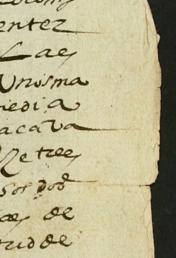 entez
Las
Unisma
media
acava
Retres
sos dod
as de
tud de